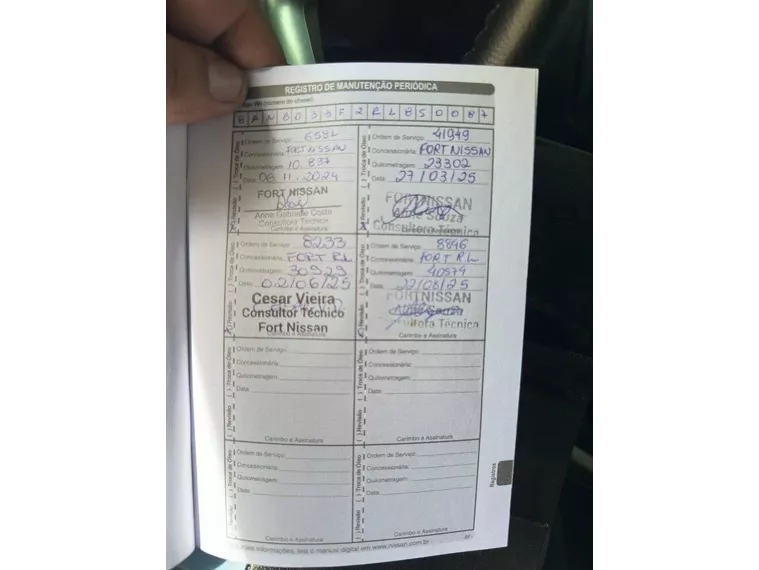 REGISTRO DE MANUTENÇÃO PERIÓDICA
(número do chassi)
8 A N B D 3 3 F 2 R L 8 5 0 0 8 7
Ordem de Serviço:
Concessionária: FORT NISSAN
Quilometragem: 10.837
Data: 08.11.2024
FORT NISSAN
Anne Gabriele Costa
Consultora Técnica
Carimbo e Assinatura
( ) Troca de Óleo
Revisão
Ordem de Serviço: 41949
Concessionária: FORT NISSAN
Quilometragem: 23302
Data: 27/03/25
FORTNISSAN
Anne Souza
Consultora Técnica
( ) Troca de Óleo
Revisão
Ordem de Serviço: 8233
Concessionária: FORT R.L
Quilometragem: 30929
Data: 02/06/25
Cesar Vieira
Consultor Técnico
Fort Nissan
Carimbo e Assinatura
( ) Troca de Óleo
Revisão
Ordem de Serviço: 8896
Concessionária: FORT R.L
Quilometragem: 40579
Data: 22/08/25
FORTNISSAN
Consultora Técnica
Carimbo e Assinatura
( ) Troca de Óleo
Revisão
Ordem de Serviço:
Concessionária:
Quilometragem:
Data:
Carimbo e Assinatura
( ) Troca de Óleo
( ) Revisão
Ordem de Serviço:
Concessionária:
Quilometragem:
Data:
Carimbo e Assinatura
( ) Troca de Óleo
( ) Revisão
Ordem de Serviço:
Concessionária:
Quilometragem:
Data:
Carimbo e Assinatura
( ) Troca de Óleo
( ) Revisão
Ordem de Serviço:
Concessionária:
Quilometragem:
Data:
Carimbo e Assinatura
( ) Troca de Óleo
( ) Revisão
Registros
mais informações, leia o manual digital em www.nissan.com.br